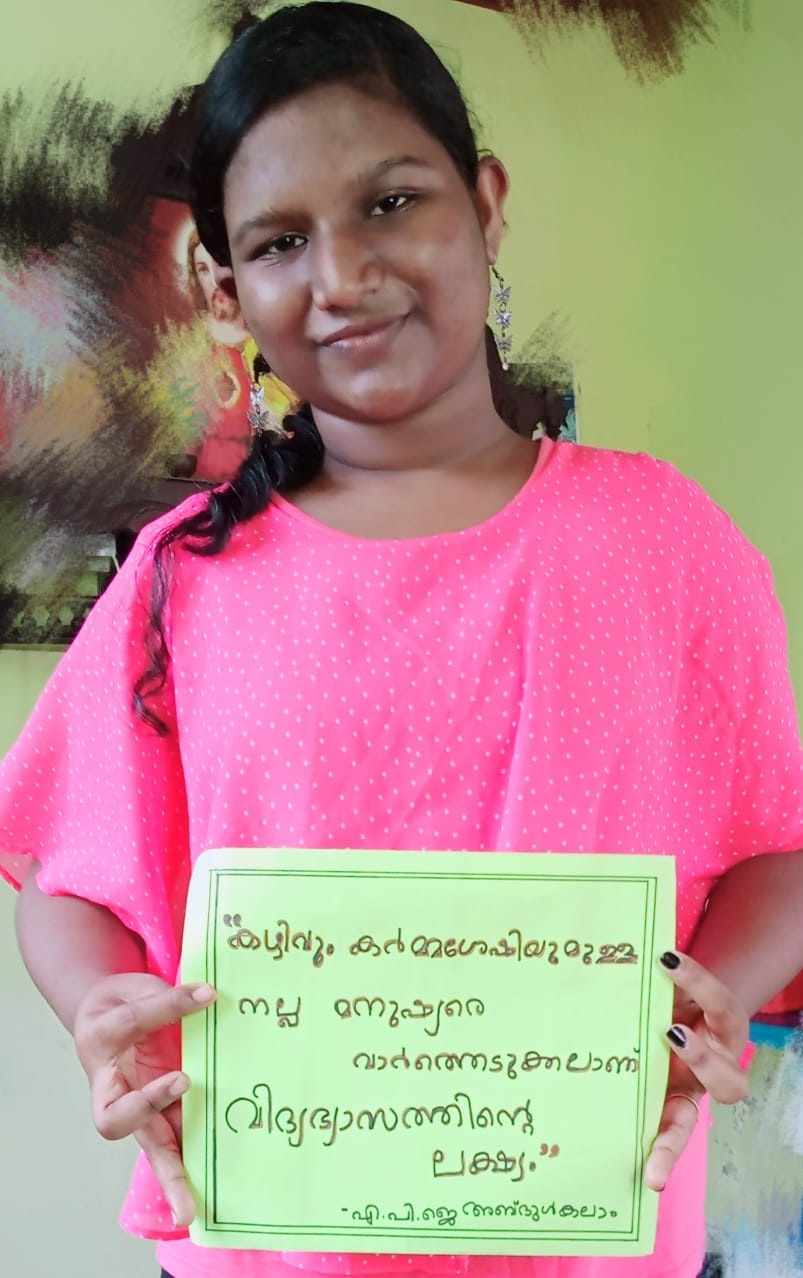 “കഴിവും കർമ്മശേഷിയുമുള്ള
നല്ല മനുഷ്യരെ
വാർത്തെടുക്കലാണ്
വിദ്യഭ്യാസത്തിന്റെ
ലക്ഷ്യം.”
-എ.പി.ജെ അബ്ദുൾകലാം